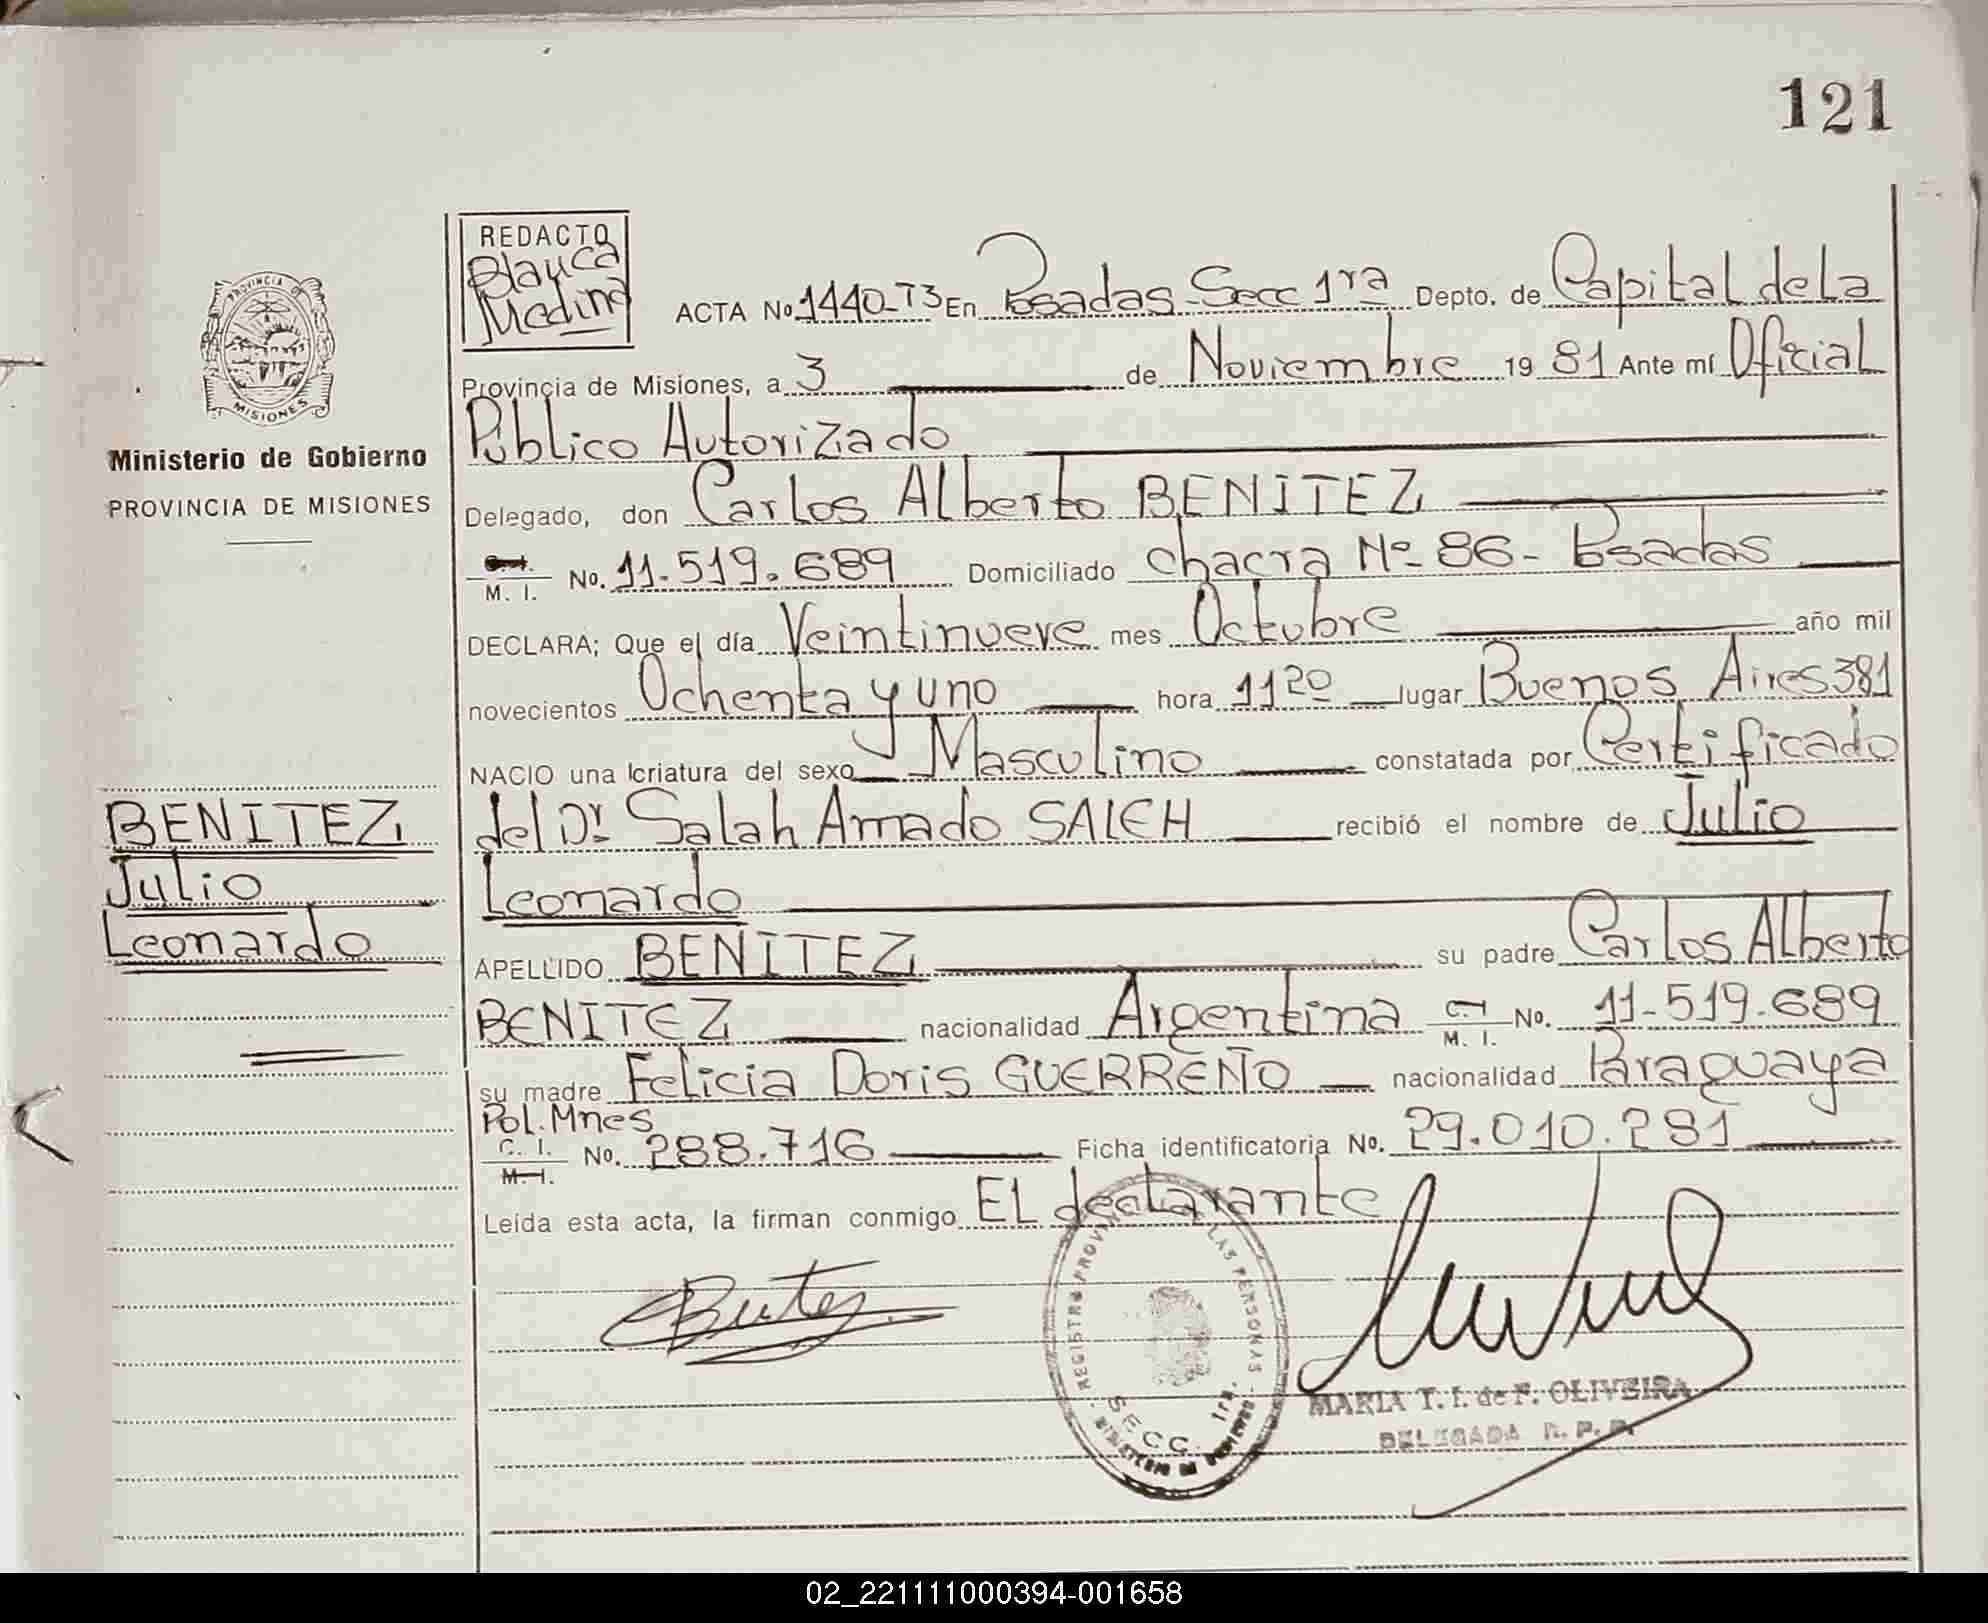 121
REDACTO
Blanca
Medina
ACTA No 1440-T3 En Posadas-Secc 1ra Depto. de Capital de La
Provincia de Misiones, a 3 de Noviembre 1981 Ante mí Oficial
Público Autorizado
Delegado, don Carlos Alberto BENITEZ
C. I. M. I. No. 11.519.689 Domiciliado chacra Nº 86 - Posadas
DECLARA; Que el día Veintinueve mes Octubre año mil
novecientos Ochenta y uno hora 11 20 lugar Buenos Aires 381
NACIO una criatura del sexo Masculino constatada por Certificado
del Dr Salah Amado SALEH recibió el nombre de Julio
Leonardo
APELLIDO BENITEZ su padre Carlos Alberto
BENITEZ nacionalidad Argentina C. I. M. I. No. 11-519.689
su madre Felicia Doris GUERREÑO nacionalidad Paraguaya
Pol. Mnes
C. I. M. I. No. 288.716 Ficha identificatoria No. 29.010.281
Leída esta acta, la firman conmigo EL declarante
PROVINCIA DE
MISIONES
Ministerio de Gobierno
PROVINCIA DE MISIONES
BENITEZ
Julio
Leonardo
REGISTRO PROVIN LAS PERSONAS
SECC. 1ra.
MINISTERIO DE GOBIERNO
MARIA T. I. de F. OLIVEIRA
DELEGADA R. P. P.
02_221111000394-001658